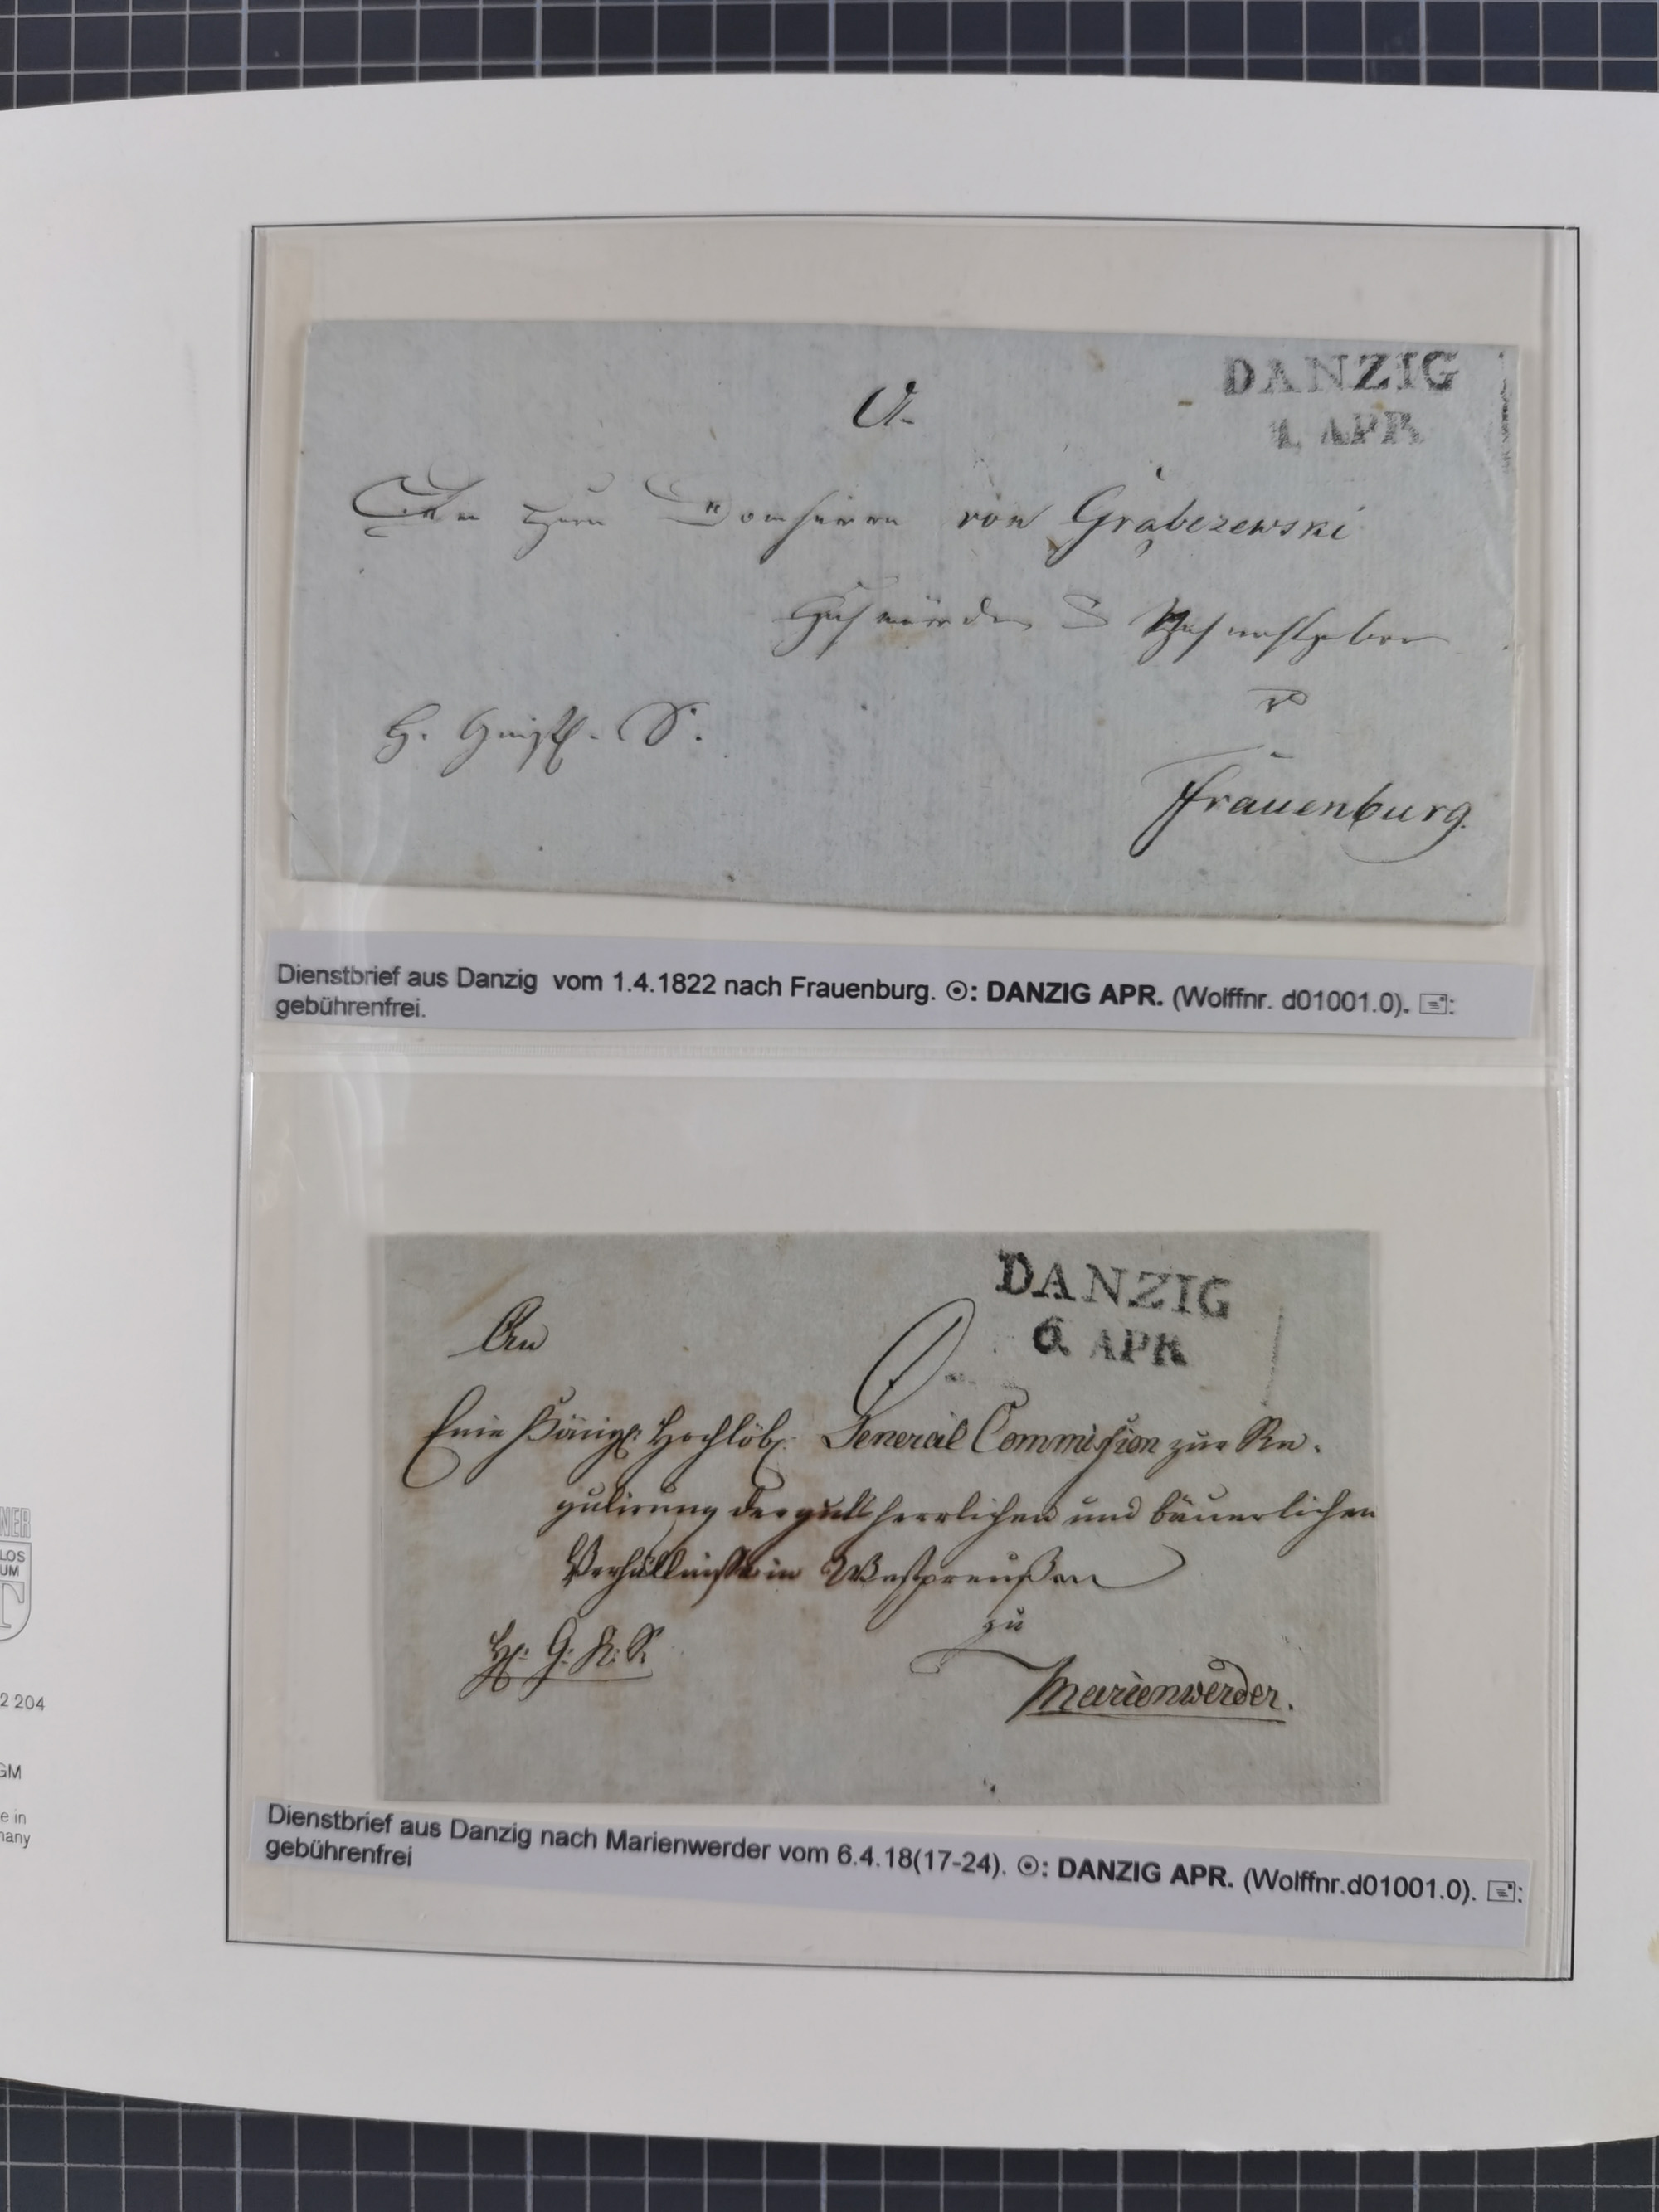 DANZIG
1. APR
An Herrn Domherrn von Grabczewski
Hochwürden
Frauenburg.
Dienstbrief aus Danzig vom 1.4.1822 nach Frauenburg. ⊙: DANZIG APR. (Wolffnr. d01001.0). 🖃:
gebührenfrei.
DANZIG
6. APR
An
Eine Königl: Hochlöbl: General Commission zur Re-
gulirung der gutsherrlichen und bäuerlichen
Verhältnisse in Westpreußen
zu
Marienwerder.
Dienstbrief aus Danzig nach Marienwerder vom 6.4.18(17-24). ⊙: DANZIG APR. (Wolffnr.d01001.0). 🖃:
gebührenfrei
NER
LOS
UM
T
2 204
GM
e in
many